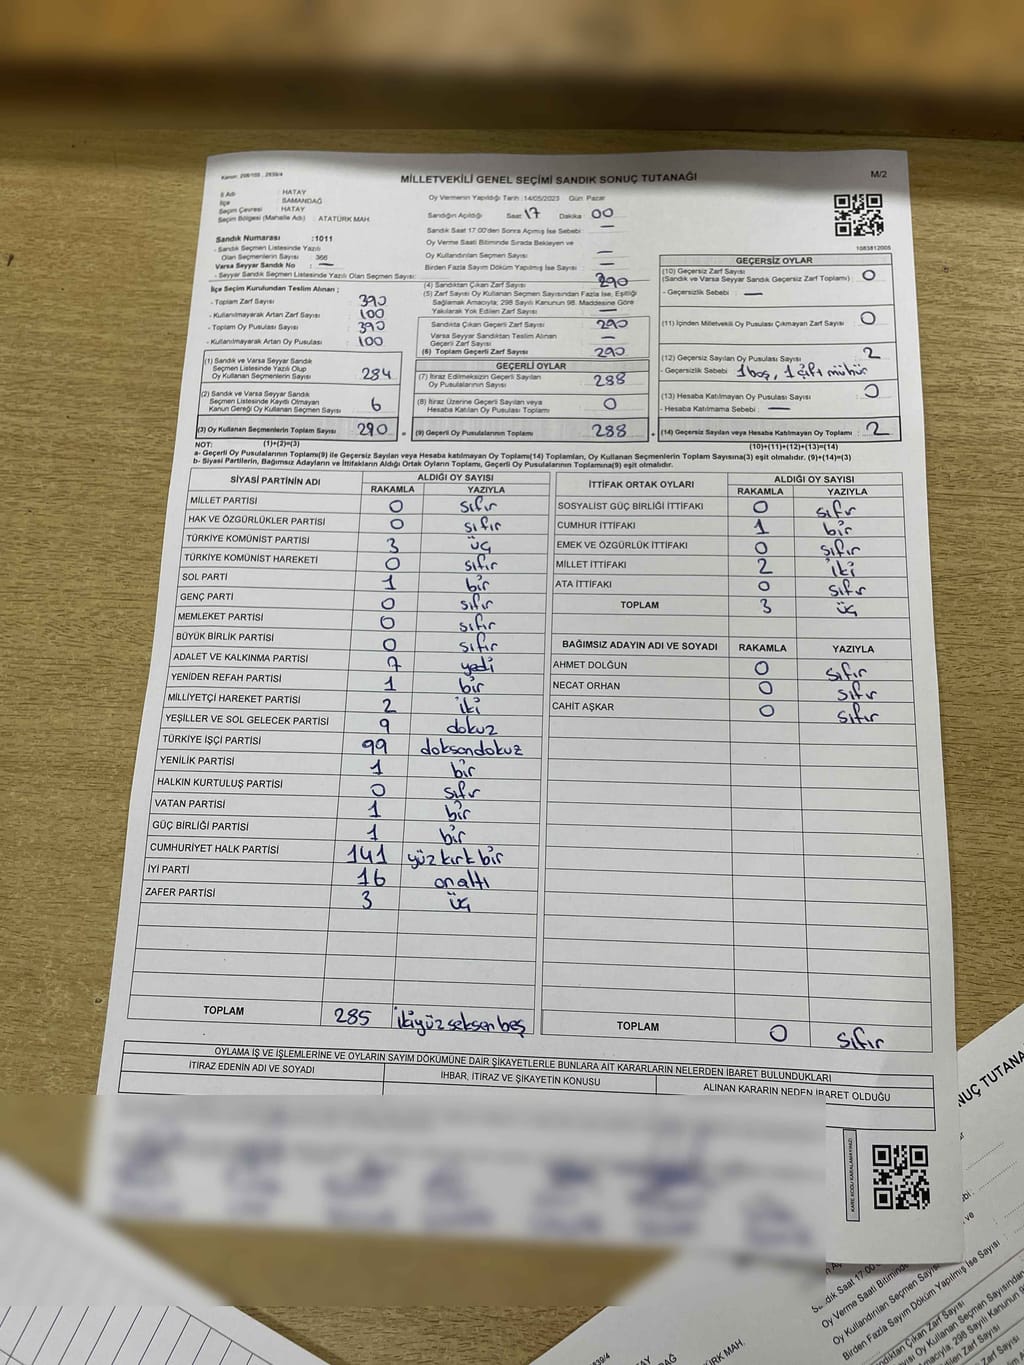 Kanun: 298/105 , 2839/4
MİLLETVEKİLİ GENEL SEÇİMİ SANDIK SONUÇ TUTANAĞI
M/2
İl Adı : HATAY
İlçe : SAMANDAĞ
Seçim Çevresi : HATAY
Seçim Bölgesi (Mahalle Adı) : ATATÜRK MAH.
Sandık Numarası :1011
- Sandık Seçmen Listesinde Yazılı
Olan Seçmenlerin Sayısı 366
Varsa Seyyar Sandık No : —
- Seyyar Sandık Seçmen Listesinde Yazılı Olan Seçmen Sayısı:
İlçe Seçim Kurulundan Teslim Alınan ;
- Toplam Zarf Sayısı 390
- Kullanılmayarak Artan Zarf Sayısı 100
- Toplam Oy Pusulası Sayısı 390
- Kullanılmayarak Artan Oy Pusulası 100
(1) Sandık ve Varsa Seyyar Sandık
Seçmen Listesinde Yazılı Olup
Oy Kullanan Seçmenlerin Sayısı 284
(2) Sandık ve Varsa Seyyar Sandık
Seçmen Listesinde Kayıtlı Olmayan
Kanun Gereği Oy Kullanan Seçmen Sayısı 6
(3) Oy Kullanan Seçmenlerin Toplam Sayısı 290
Oy Vermenin Yapıldığı Tarih :14/05/2023 Gün: Pazar
Sandığın Açıldığı Saat 17 Dakika : 00
Sandık Saat 17.00'den Sonra Açılmış İse Sebebi: —
Oy Verme Saati Bitiminde Sırada Bekleyen ve
Oy Kullandırılan Seçmen Sayısı —
Birden Fazla Sayım Döküm Yapılmış İse Sayısı : —
(4) Sandıktan Çıkan Zarf Sayısı 290
(5) Zarf Sayısı Oy Kullanan Seçmen Sayısından Fazla İse, Eşitliği
Sağlamak Amacıyla; 298 Sayılı Kanunun 98. Maddesine Göre
Yakılarak Yok Edilen Zarf Sayısı —
Sandıkta Çıkan Geçerli Zarf Sayısı 290
Varsa Seyyar Sandıktan Teslim Alınan
Geçerli Zarf Sayısı —
(6) Toplam Geçerli Zarf Sayısı 290
GEÇERLİ OYLAR
(7) İtiraz Edilmeksizin Geçerli Sayılan
Oy Pusulalarının Sayısı 288
(8) İtiraz Üzerine Geçerli Sayılan veya
Hesaba Katılan Oy Pusulası Toplamı 0
= (9) Geçerli Oy Pusulalarının Toplamı 288
1083812005
GEÇERSİZ OYLAR
(10) Geçersiz Zarf Sayısı
(Sandık ve Varsa Seyyar Sandık Geçersiz Zarf Toplamı) : 0
- Geçersizlik Sebebi : —
(11) İçinden Milletvekili Oy Pusulası Çıkmayan Zarf Sayısı 0
(12) Geçersiz Sayılan Oy Pusulası Sayısı 2
- Geçersizlik Sebebi : 1 boş, 1 çift mühür
(13) Hesaba Katılmayan Oy Pusulası Sayısı 0
- Hesaba Katılmama Sebebi : —
+ (14) Geçersiz Sayılan veya Hesaba Katılmayan Oy Toplamı : 2
NOT: (1)+(2)=(3) (10)+(11)+(12)+(13)=(14)
a- Geçerli Oy Pusulalarının Toplamı(9) ile Geçersiz Sayılan veya Hesaba katılmayan Oy Toplamı(14) Toplamları, Oy Kullanan Seçmenlerin Toplam Sayısına(3) eşit olmalıdır. (9)+(14)=(3)
b- Siyasi Partilerin, Bağımsız Adayların ve İttifakların Aldığı Ortak Oyların Toplamı, Geçerli Oy Pusulalarının Toplamına(9) eşit olmalıdır.
SİYASİ PARTİNİN ADI ALDIĞI OY SAYISI
RAKAMLA YAZIYLA
MİLLET PARTİSİ 0 sıfır
HAK VE ÖZGÜRLÜKLER PARTİSİ 0 sıfır
TÜRKİYE KOMÜNİST PARTİSİ 3 üç
TÜRKİYE KOMÜNİST HAREKETİ 0 sıfır
SOL PARTİ 1 bir
GENÇ PARTİ 0 sıfır
MEMLEKET PARTİSİ 0 sıfır
BÜYÜK BİRLİK PARTİSİ 0 sıfır
ADALET VE KALKINMA PARTİSİ 7 yedi
YENİDEN REFAH PARTİSİ 1 bir
MİLLİYETÇİ HAREKET PARTİSİ 2 iki
YEŞİLLER VE SOL GELECEK PARTİSİ 9 dokuz
TÜRKİYE İŞÇİ PARTİSİ 99 doksandokuz
YENİLİK PARTİSİ 1 bir
HALKIN KURTULUŞ PARTİSİ 0 sıfır
VATAN PARTİSİ 1 bir
GÜÇ BİRLİĞİ PARTİSİ 1 bir
CUMHURİYET HALK PARTİSİ 141 yüz kırk bir
İYİ PARTİ 16 on altı
ZAFER PARTİSİ 3 üç
TOPLAM 285 ikiyüz seksen beş
İTTİFAK ORTAK OYLARI ALDIĞI OY SAYISI
RAKAMLA YAZIYLA
SOSYALİST GÜÇ BİRLİĞİ İTTİFAKI 0 sıfır
CUMHUR İTTİFAKI 1 bir
EMEK VE ÖZGÜRLÜK İTTİFAKI 0 sıfır
MİLLET İTTİFAKI 2 iki
ATA İTTİFAKI 0 sıfır
TOPLAM 3 üç
BAĞIMSIZ ADAYIN ADI VE SOYADI RAKAMLA YAZIYLA
AHMET DOLĞUN 0 sıfır
NECAT ORHAN 0 sıfır
CAHİT AŞKAR 0 sıfır
TOPLAM 0 sıfır
OYLAMA İŞ VE İŞLEMLERİNE VE OYLARIN SAYIM DÖKÜMÜNE DAİR ŞİKAYETLERLE BUNLARA AİT KARARLARIN NELERDEN İBARET BULUNDUKLARI
İTİRAZ EDENİN ADI VE SOYADI İHBAR, İTİRAZ VE ŞİKAYETİN KONUSU ALINAN KARARIN NEDEN İBARET OLDUĞU
KARE KODU KARALAMAYINIZ!
NUÇ TUTANA
Saat 17:00
Oy Verme Saati Bitiminde
Oy Kullandırılan Seçmen Sayısı
Birden Fazla Sayım Döküm Yapılmış İse Sayısı
Çıkan Zarf Sayısı
Oy Kullanan Seçmen Sayısından
Amacıyla, 298 Sayılı Kanunun 9
Zarf Sayısı
2839/4
RK MAH.